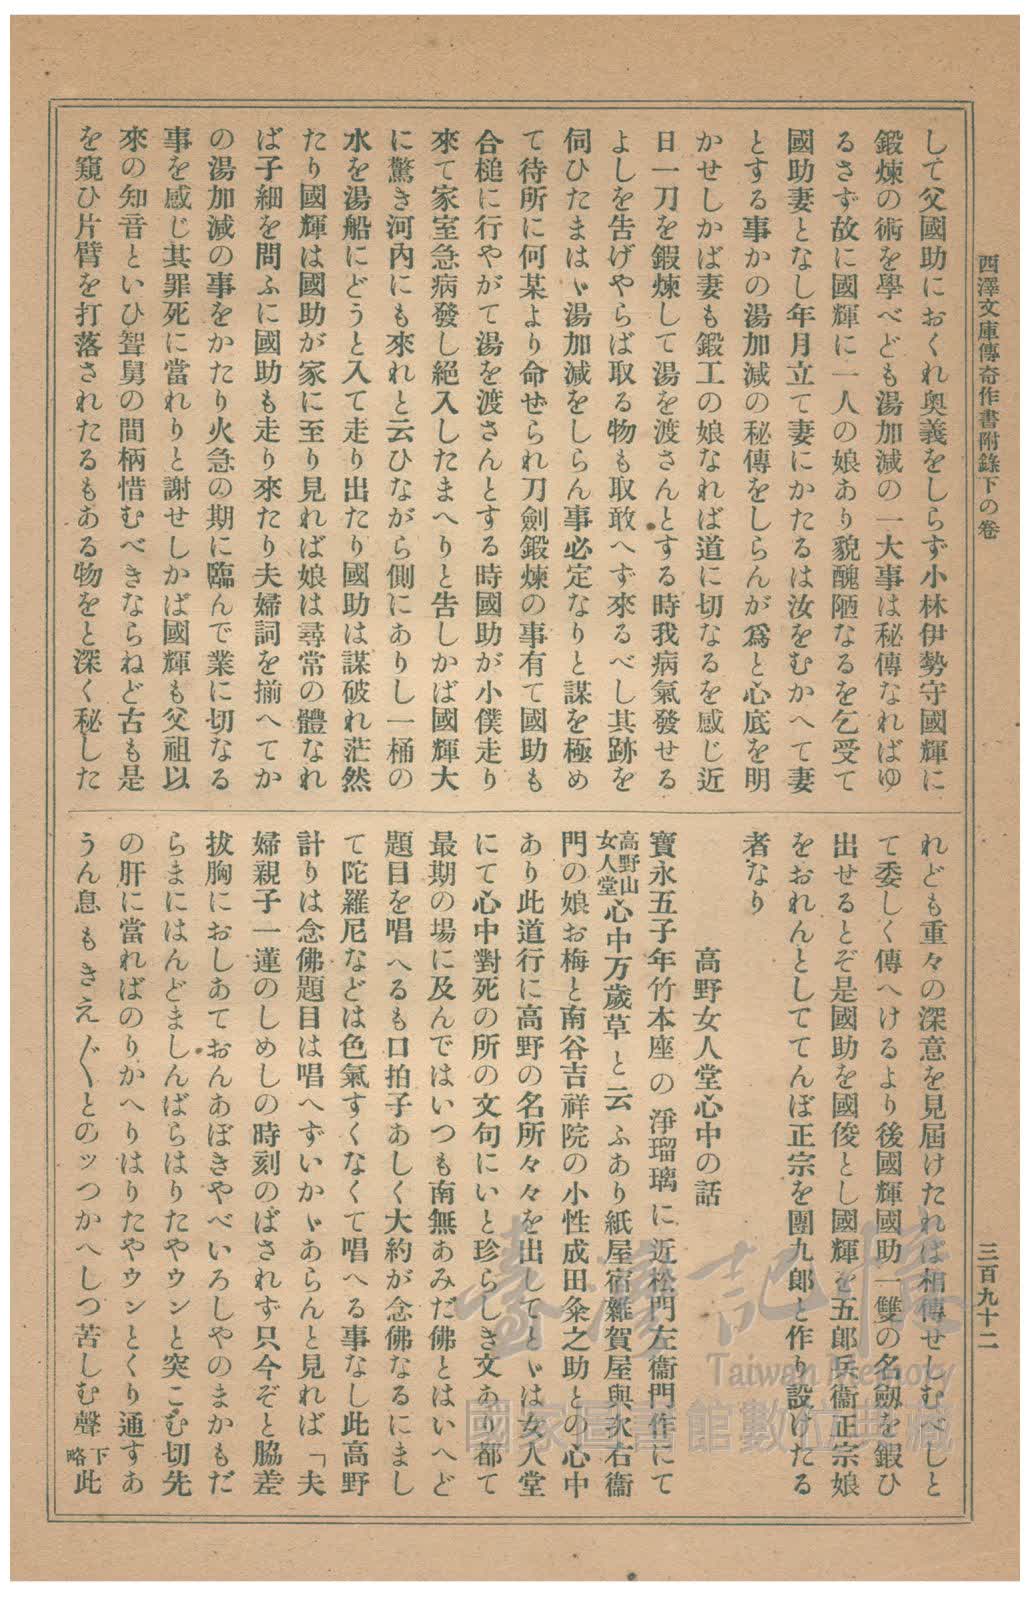 西澤文庫傳奇作書附錄下の卷
三百九十二
して父國助におくれ奥義をしらず小林伊勢守國輝に
鍛煉の術を學べども湯加減の一大事は秘傳なればゆ
るさず故に國輝に一人の娘あり貌醜陋なるを乞受て
國助妻となし年月立て妻にかたるは汝をむかへて妻
とする事かの湯加減の秘傳をしらんが爲と心底を明
かせしかば妻も鍛工の娘なれば道に切なるを感じ近
日一刀を鍛煉して湯を渡さんとする時我病氣發せる
よしを吿げやらば取る物も取敢へず來るべし其跡を
伺ひたまはゞ湯加減をしらん事必定なりと謀を極め
て待所に何某より命せられ刀劍鍛煉の事有て國助も
合槌に行やがて湯を渡さんとする時國助が小僕走り
來て家室急病發し絕入したまへりと吿しかば國輝大
に驚き河內にも來れと云ひながら側にありし一桶の
水を湯船にどうと入て走り出たり國助は謀破れ茫然
たり國輝は國助が家に至り見れば娘は尋常の體なれ
ば子細を問ふに國助も走り來たり夫婦詞を揃へてか
の湯加減の事をかたり火急の期に臨んで業に切なる
事を感じ其罪死に當れりと謝せしかば國輝も父祖以
來の知音といひ聟舅の間柄惜むべきならねど古も是
を窺ひ片臂を打落されたるもある物をと深く秘した
れども重々の深意を見屆けたれば相傳せしむべしと
て委しく傳へけるより後國輝國助一雙の名劔を鍛ひ
出せるとぞ是國助を國俊とし國輝を五郎兵衞正宗娘
をおれんとしててんぼ正宗を團九郎と作り設けたる
者なり
高野女人堂心中の話
寶永五子年竹本座の淨瑠璃に近松門左衞門作にて
高野山女人堂心中万歲草と云ふあり紙屋宿雜賀屋與次右衞
門の娘お梅と南谷吉祥院の小性成田粂之助との心中
あり此道行に高野の名所々々を出してとゞは女人堂
にて心中對死の所の文句にいと珍らしき文あり都て
最期の場に及んではいつも南無あみだ佛とはいへど
題目を唱へるも口拍子あしく大約が念佛なるにまし
て陀羅尼などは色氣すくなくて唱へる事なし此高野
計りは念佛題目は唱へずいかゞあらんと見れば「夫
婦親子一蓮のしめしの時刻のばされず只今ぞと脇差
拔胸におしあておんあぼきやべいろしやのまかもだ
らまにはんどましんばらはりたやウンと突こむ切先
の肝に當ればのりかへりはりたやウンとくり通すあ
うん息もきえ〴〵とのッつかへしつ苦しむ聲下略此
臺灣記憶
Taiwan Memory
國家圖書館數位典藏